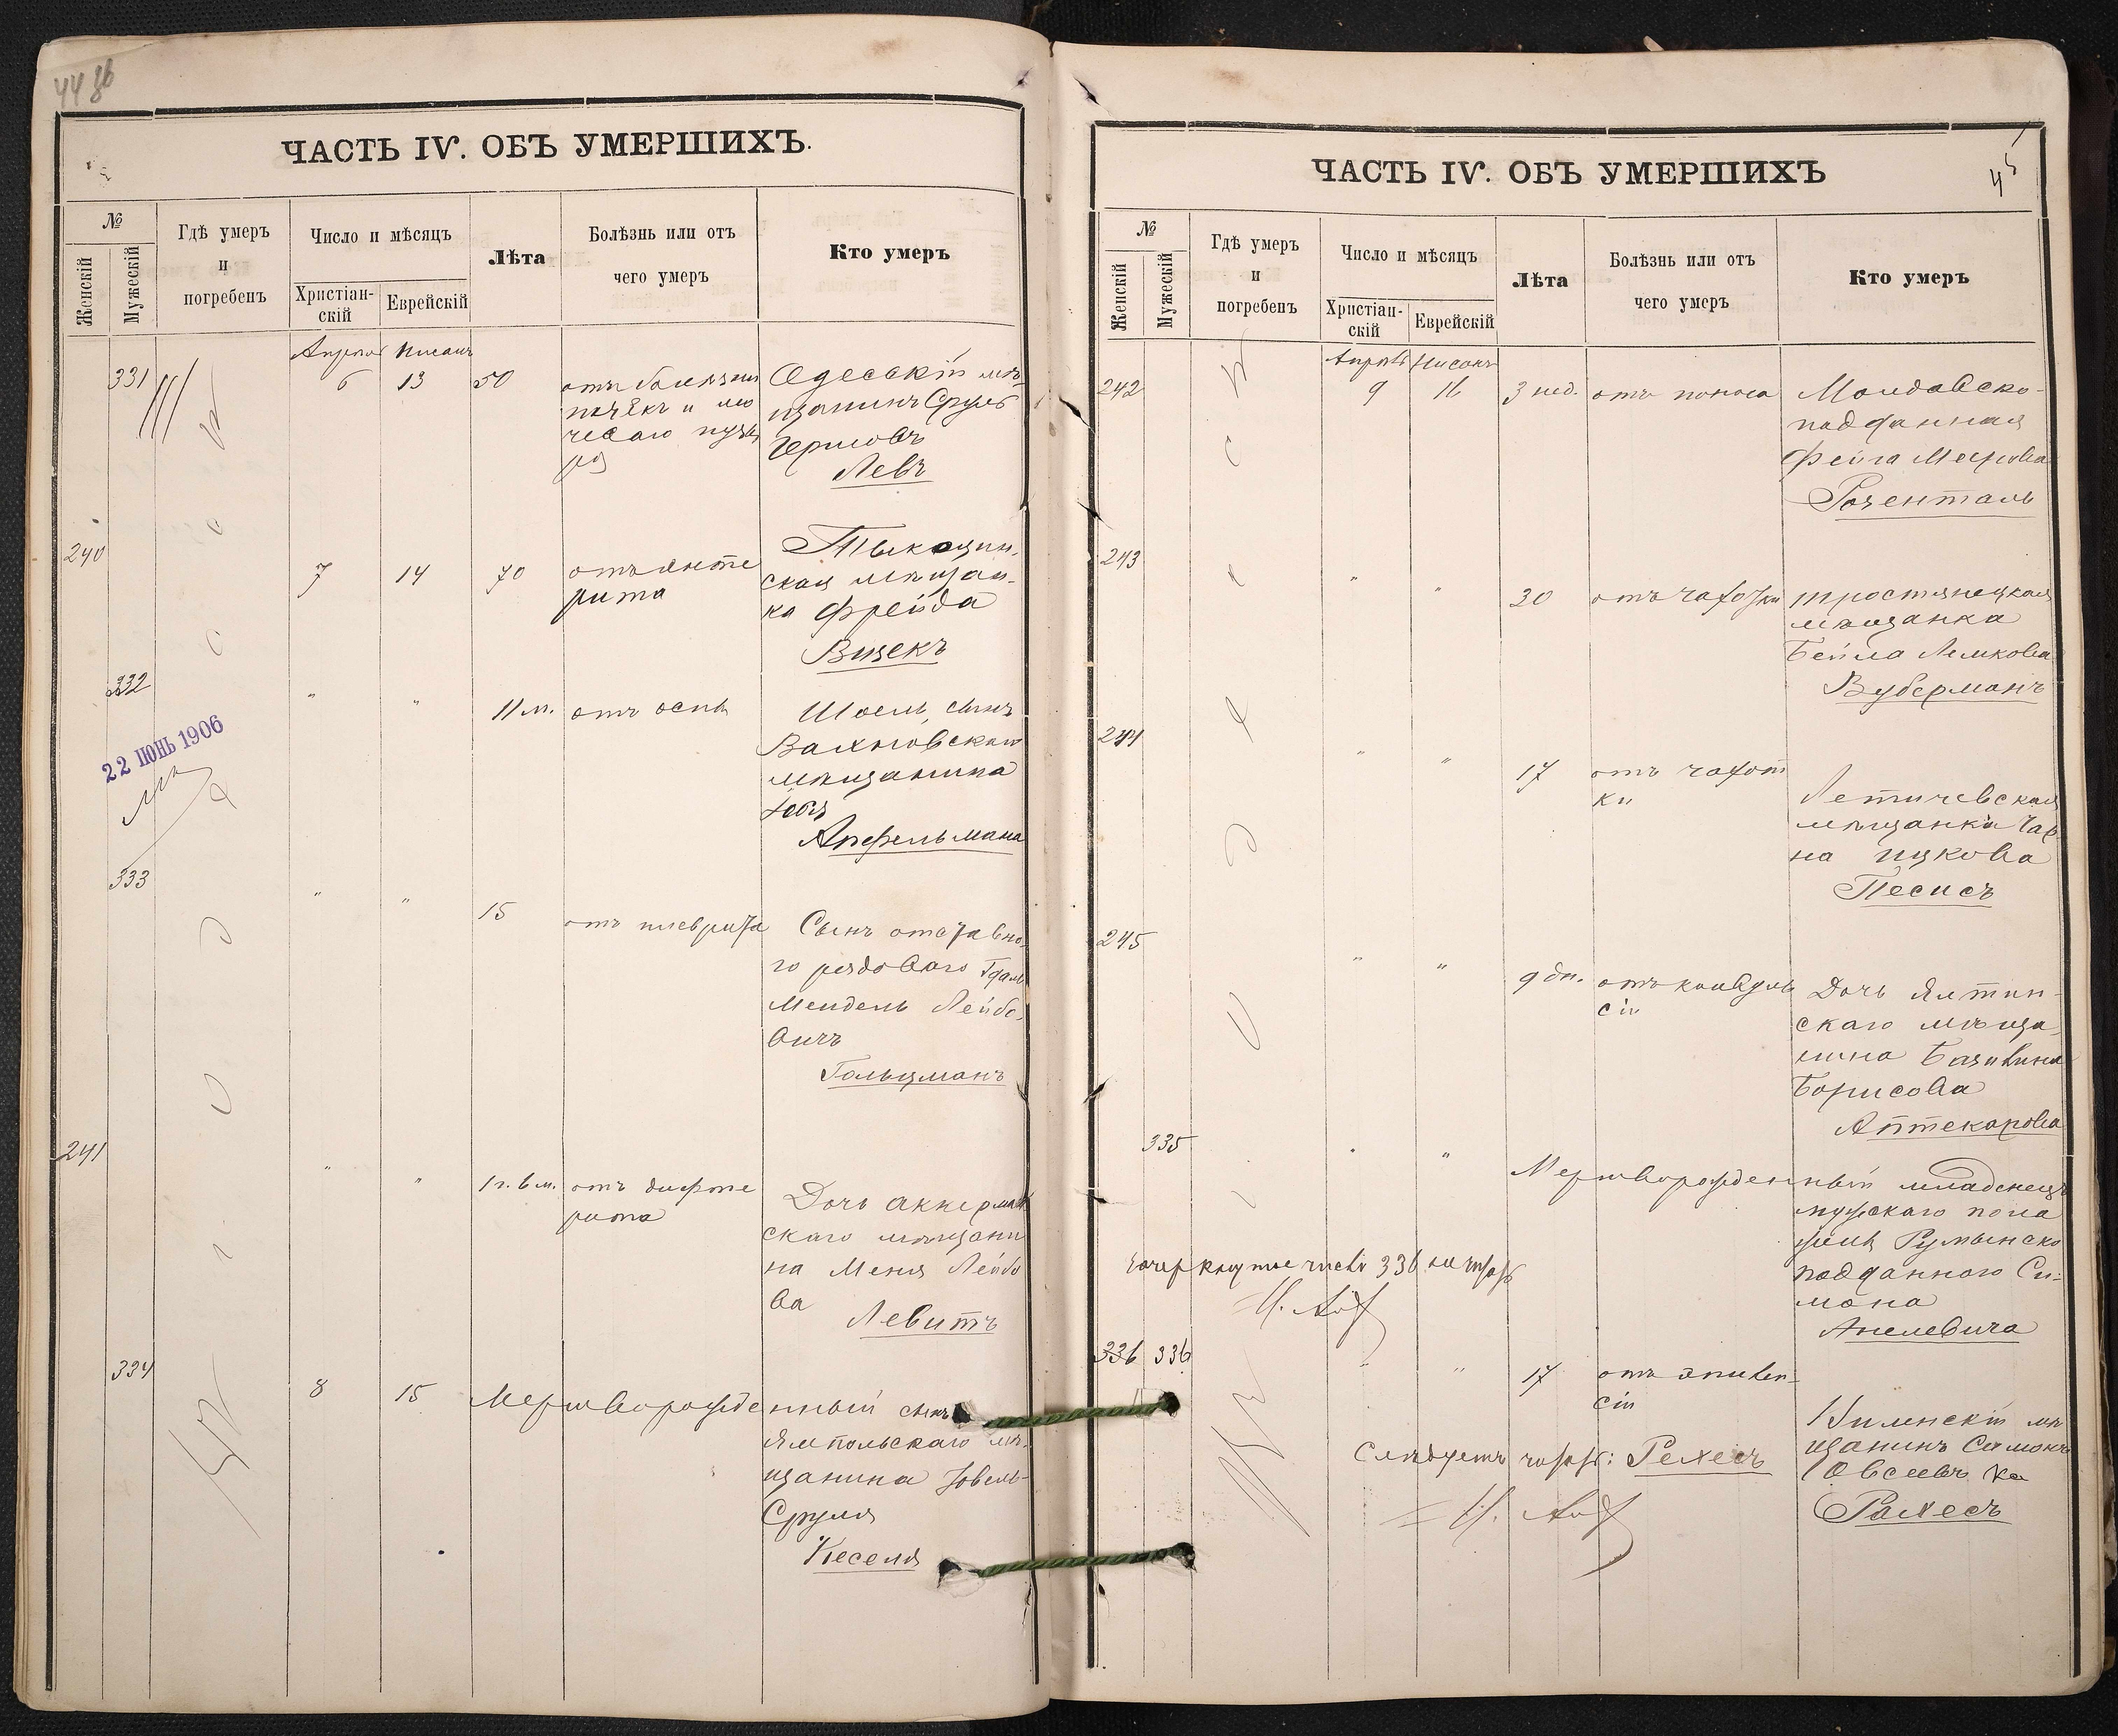 44 об
ЧАСТЬ IV. ОБЪ УМЕРШИХЪ.
№
Женскій
Мужескій
Гдѣ умеръ
и
погребенъ
Число и мѣсяцъ
Христіан-
скій
Еврейскій
Лѣта
Болѣзнь или отъ
чего умеръ
Кто умеръ
Нисанъ
331
6
13
50
отъ болѣзни
почекъ и мо
чеваго пузы
ря
Одесскій мѣ-
щанинъ Сруль
Гершовъ
Левъ
240
7
14
70
отъ энте
рита
Тыкоцин-
ская мѣщан-
ка Фрейда
Вицекъ
332
"
"
11 м.
отъ оспы
Шоель, сынъ
Вахновскаго
мѣщанина
Апфельмана
22 ІЮНЬ 1906
333
"
"
15
отъ плеврита
Сынъ отставно-
го рядоваго Гдаль
Мендель Лейбо-
вичъ
Гольцманъ
241
"
"
1 г. 6 м.
отъ дифте
рита
Дочь аккерман
скаго мѣщани
на Меня Лейбо
ва
Левитъ
334
8
15
Мертворожденный сынъ
Ямпольскаго мѣ-
щанина Іовель-
Сруля
Кеселя
45
ЧАСТЬ IV. ОБЪ УМЕРШИХЪ
№
Женскій
Мужескій
Гдѣ умеръ
и
погребенъ
Число и мѣсяцъ
Христіан-
скій
Еврейскій
Лѣта
Болѣзнь или отъ
чего умеръ
Кто умеръ
Апрѣль
Нисанъ
242
9
16
3 нед.
отъ поноса
Молдавско-
подданная
Фейга Меерова
Розенталь
243
"
"
30
отъ чахотки
тростянецкая
мѣщанка
Бейла Лемкова
Вуберманъ
244
"
"
17
отъ чахот
ки
Летичевская
мѣщанка Чар
на Ицкова
Песисъ
245
"
"
9 дн.
отъ конвуль
сіи
Дочь Ялтин-
скаго мѣща-
нина
Борисова
Аптекарова
335
"
"
Мертворожденный младенецъ
мужскаго пола
Румынско
подданнаго Си-
мона
Анелевича
зачеркнутое число 336 не читать
336
336
"
"
17
отъ эпилеп-
сіи
Виленскій мѣ
щанинъ Симонъ
Овсеевъ
Рахесъ
Слѣдуетъ читать: Рехесъ